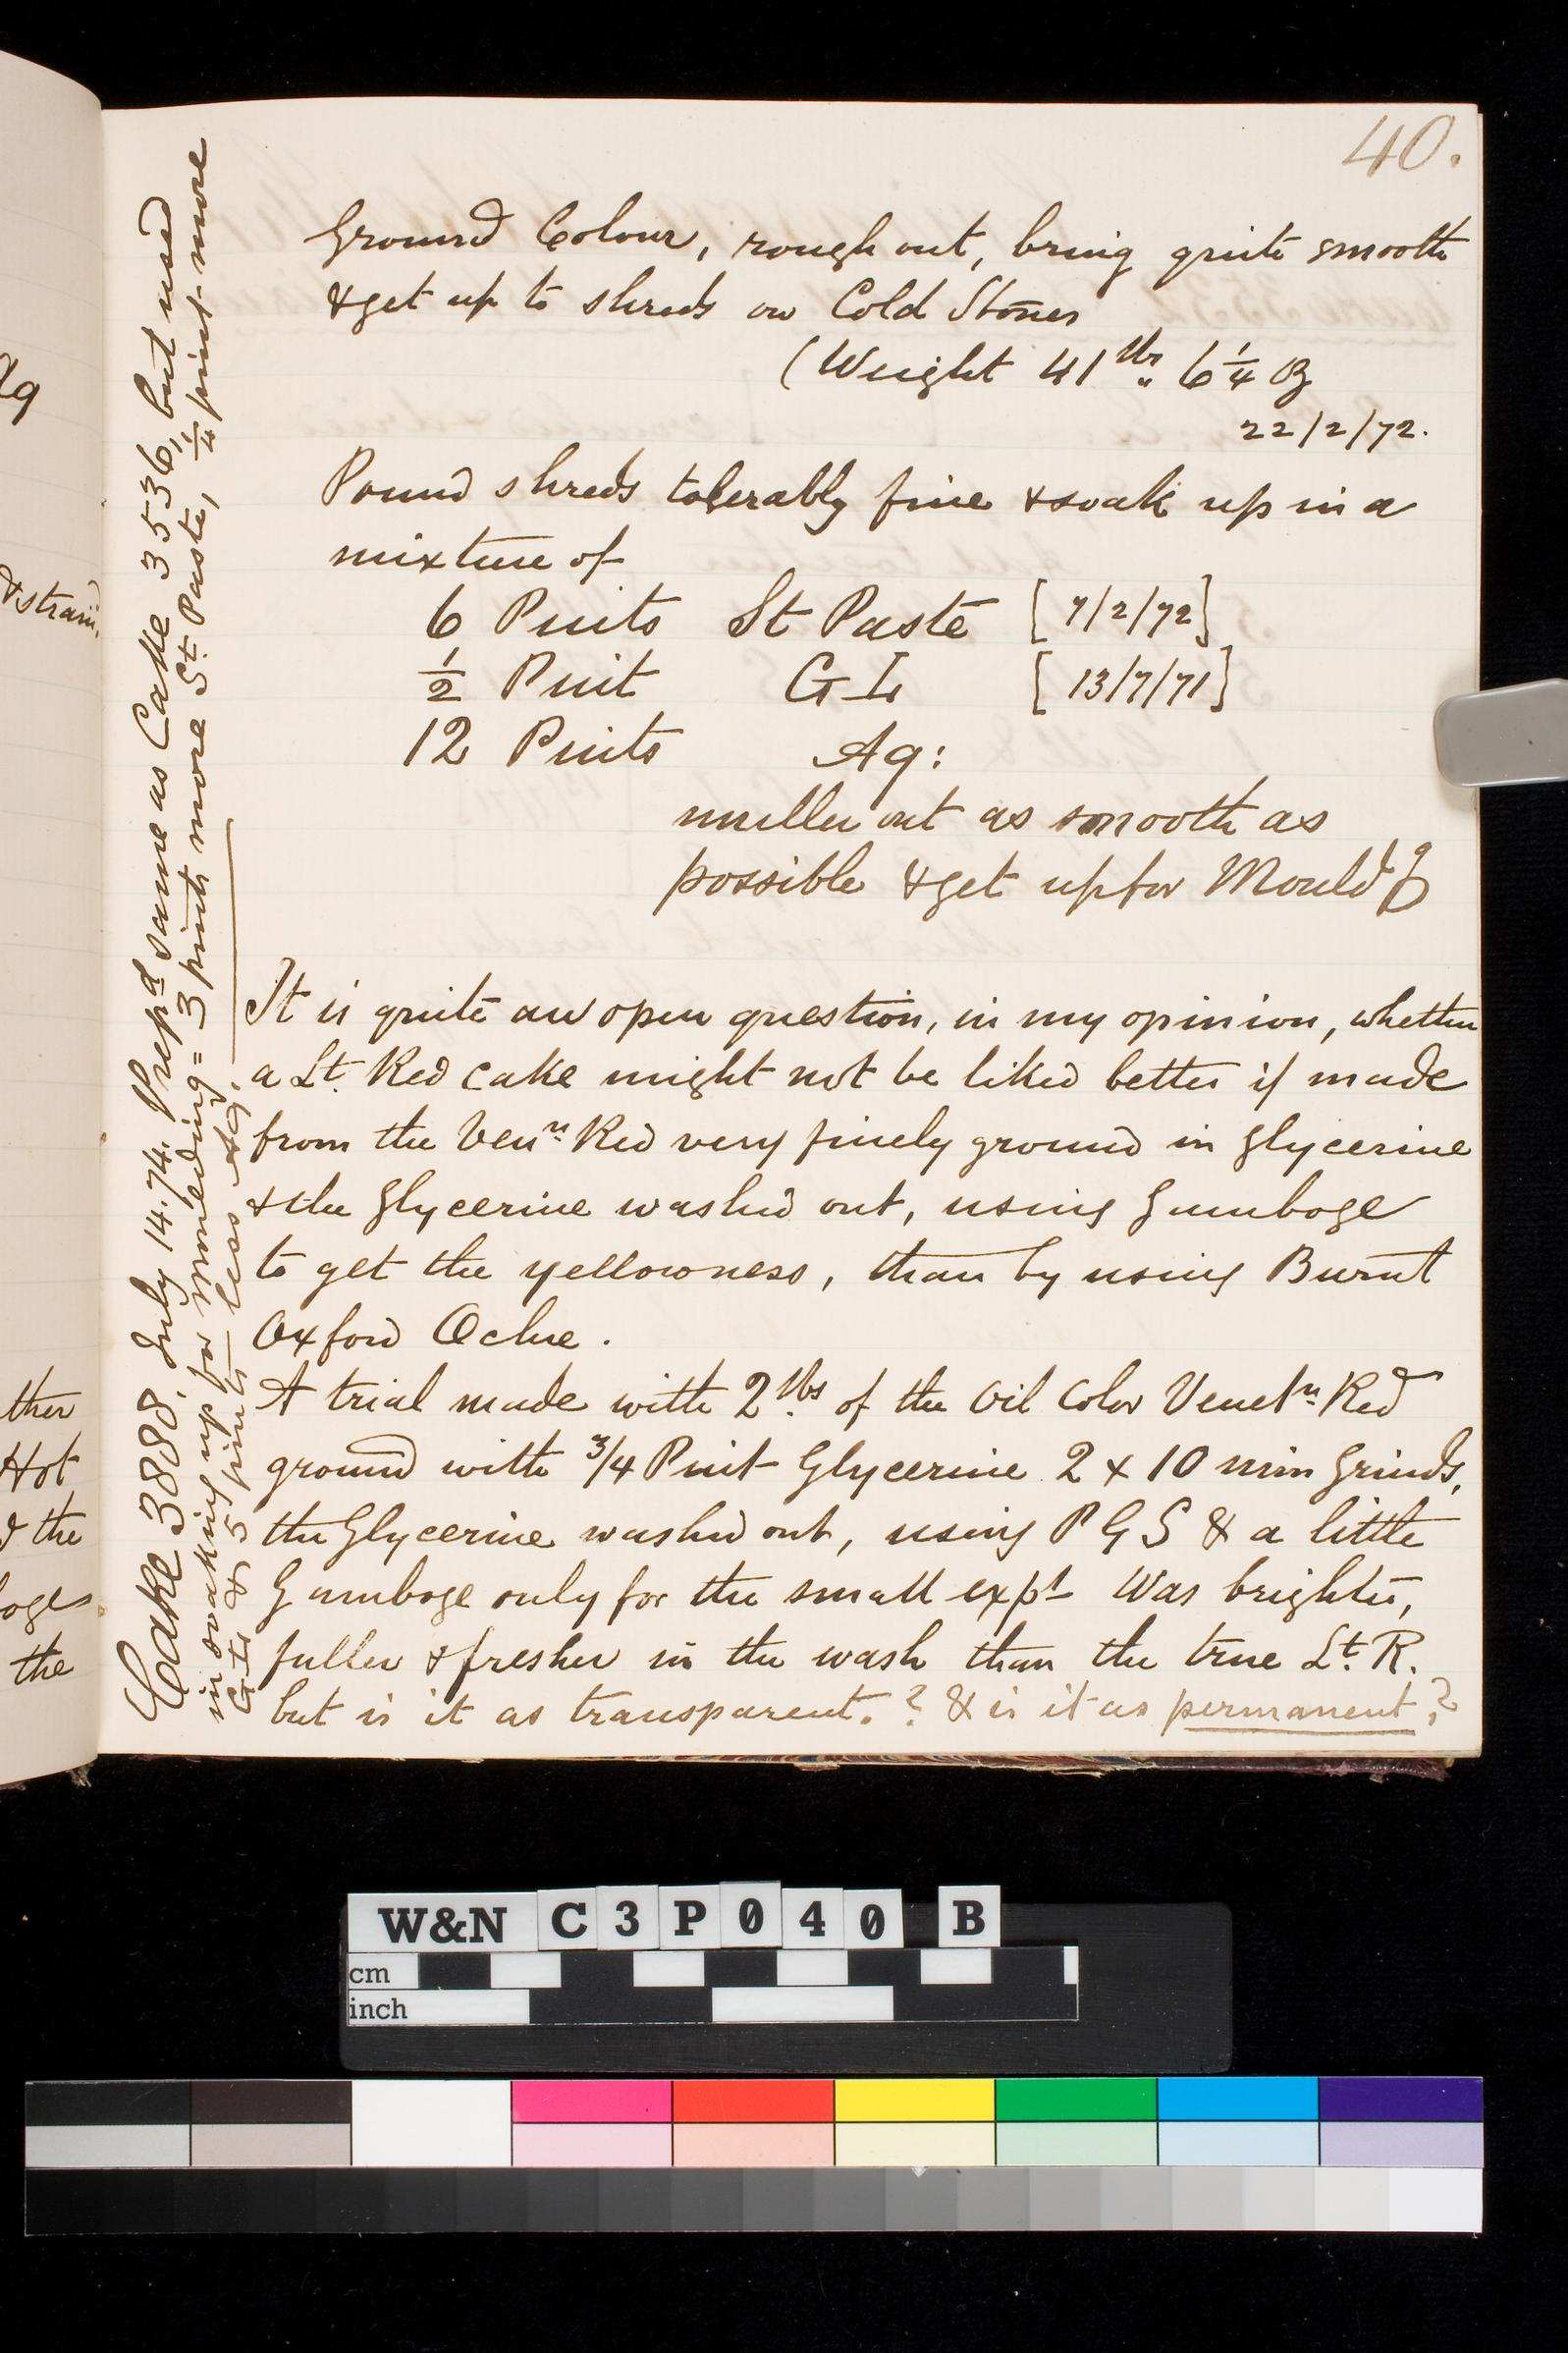 40.
Ground Colour, rough out, bring quite smooth
& get up to shreds on Cold Stones
(Weight 41 lbs 6 1/4 oz
22/2/72.
Pound shreds tolerably fine & soak up in a
mixture of
6 Pints St Paste [7/2/72]
1/2 Pint G I [13/7/71]
12 Pints Aq:
muller out as smooth as
possible & get up for Mould g
It is quite an open question, in my opinion, whether
a Lt. Red cake might not be liked better if made
from the Ven n Red very finely ground in Glycerine
& the Glycerine washed out, using Gumboge
to get the yellowness, than by using Burnt
Oxford Ochre.
A trial made with 2 lbs of the Oil Color Venet n Red
ground with 3/4 Pint Glycerine 2 x 10 min Grinds,
the Glycerine washed out, using P G S & a little
Gumboge only for the small expt Was brighter,
fuller & fresher in the wash than the true Lt. R.
but is it as transparent.? & is it as permanent?
Cake 3888, July 14.74. Prepd same as Cake 3536, but used
in soaking up for Moulding = 3 pints more St Paste, 1/4 pint more
& 5 pints less Aq.
Aq
& strain.
ther
Hot
d the
oge
the
W&N C3P040 B
cm
inch